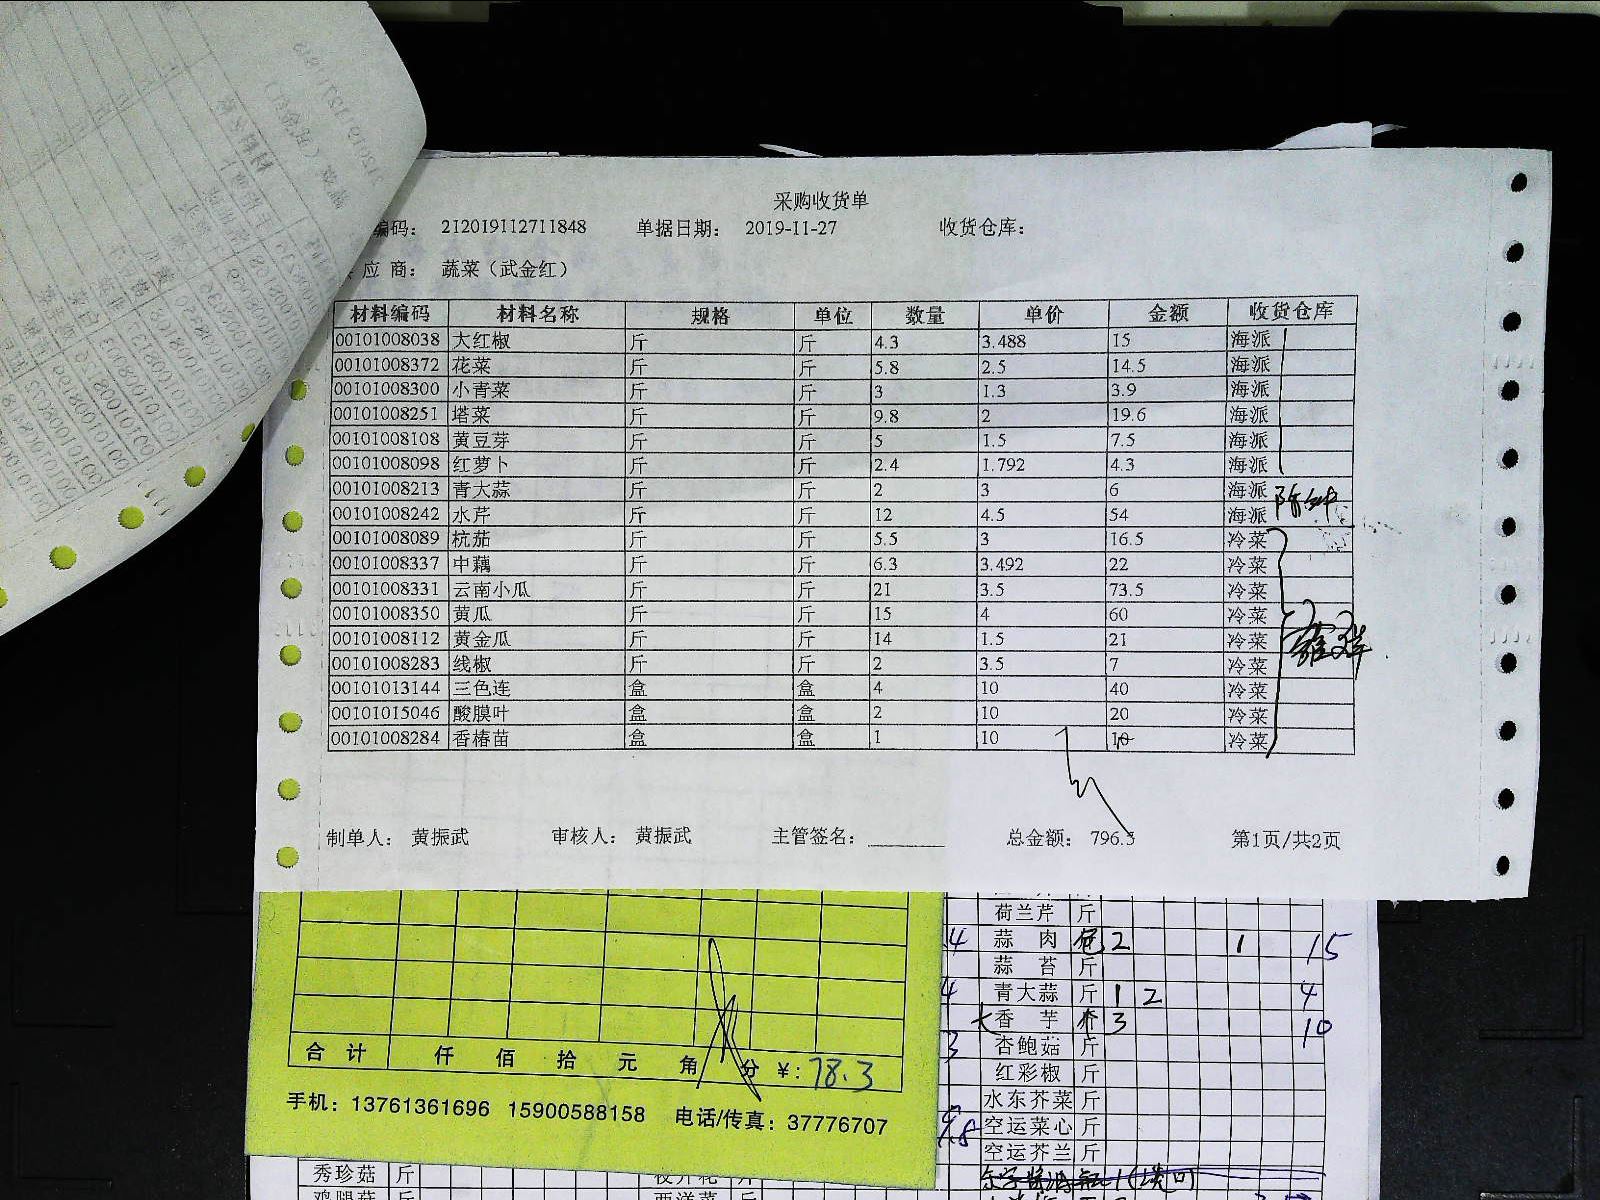 采购收货单
编码： 212019112711848 单据日期： 2019-11-27 收货仓库：
应 商： 蔬菜（武金红）
材料编码 材料名称 规格 单位 数量 单价 金额 收货仓库
00101008038 大红椒 斤 斤 4.3 3.488 15 海派
00101008372 花菜 斤 斤 5.8 2.5 14.5 海派
00101008300 小青菜 斤 斤 3 1.3 3.9 海派
00101008251 塔菜 斤 斤 9.8 2 19.6 海派
00101008108 黄豆芽 斤 斤 5 1.5 7.5 海派
00101008098 红萝卜 斤 斤 2.4 1.792 4.3 海派
00101008213 青大蒜 斤 斤 2 3 6 海派
00101008242 水芹 斤 斤 12 4.5 54 海派
00101008089 杭茄 斤 斤 5.5 3 16.5 冷菜
00101008337 中藕 斤 斤 6.3 3.492 22 冷菜
00101008331 云南小瓜 斤 斤 21 3.5 73.5 冷菜
00101008350 黄瓜 斤 斤 15 4 60 冷菜
00101008112 黄金瓜 斤 斤 14 1.5 21 冷菜
00101008283 线椒 斤 斤 2 3.5 7 冷菜
00101013144 三色连 盒 盒 4 10 40 冷菜
00101015046 酸膜叶 盒 盒 2 10 20 冷菜
00101008284 香椿苗 盒 盒 1 10 10 冷菜
制单人： 黄振武 审核人： 黄振武 主管签名： 总金额： 796.5 第1页/共2页
荷兰芹 斤
4 蒜 肉 包 2 1 15
蒜 苔 斤
4 青大蒜 斤 1 2 4
大香 芋 个 3 10
杏鲍菇 斤
红彩椒 斤
水东芥菜 斤
空运菜心 斤
空运芥兰 斤
合 计 仟 佰 拾 元 角 分 ¥：78.3
手机：13761361696 15900588158 电话/传真：37776707
秀珍菇 斤